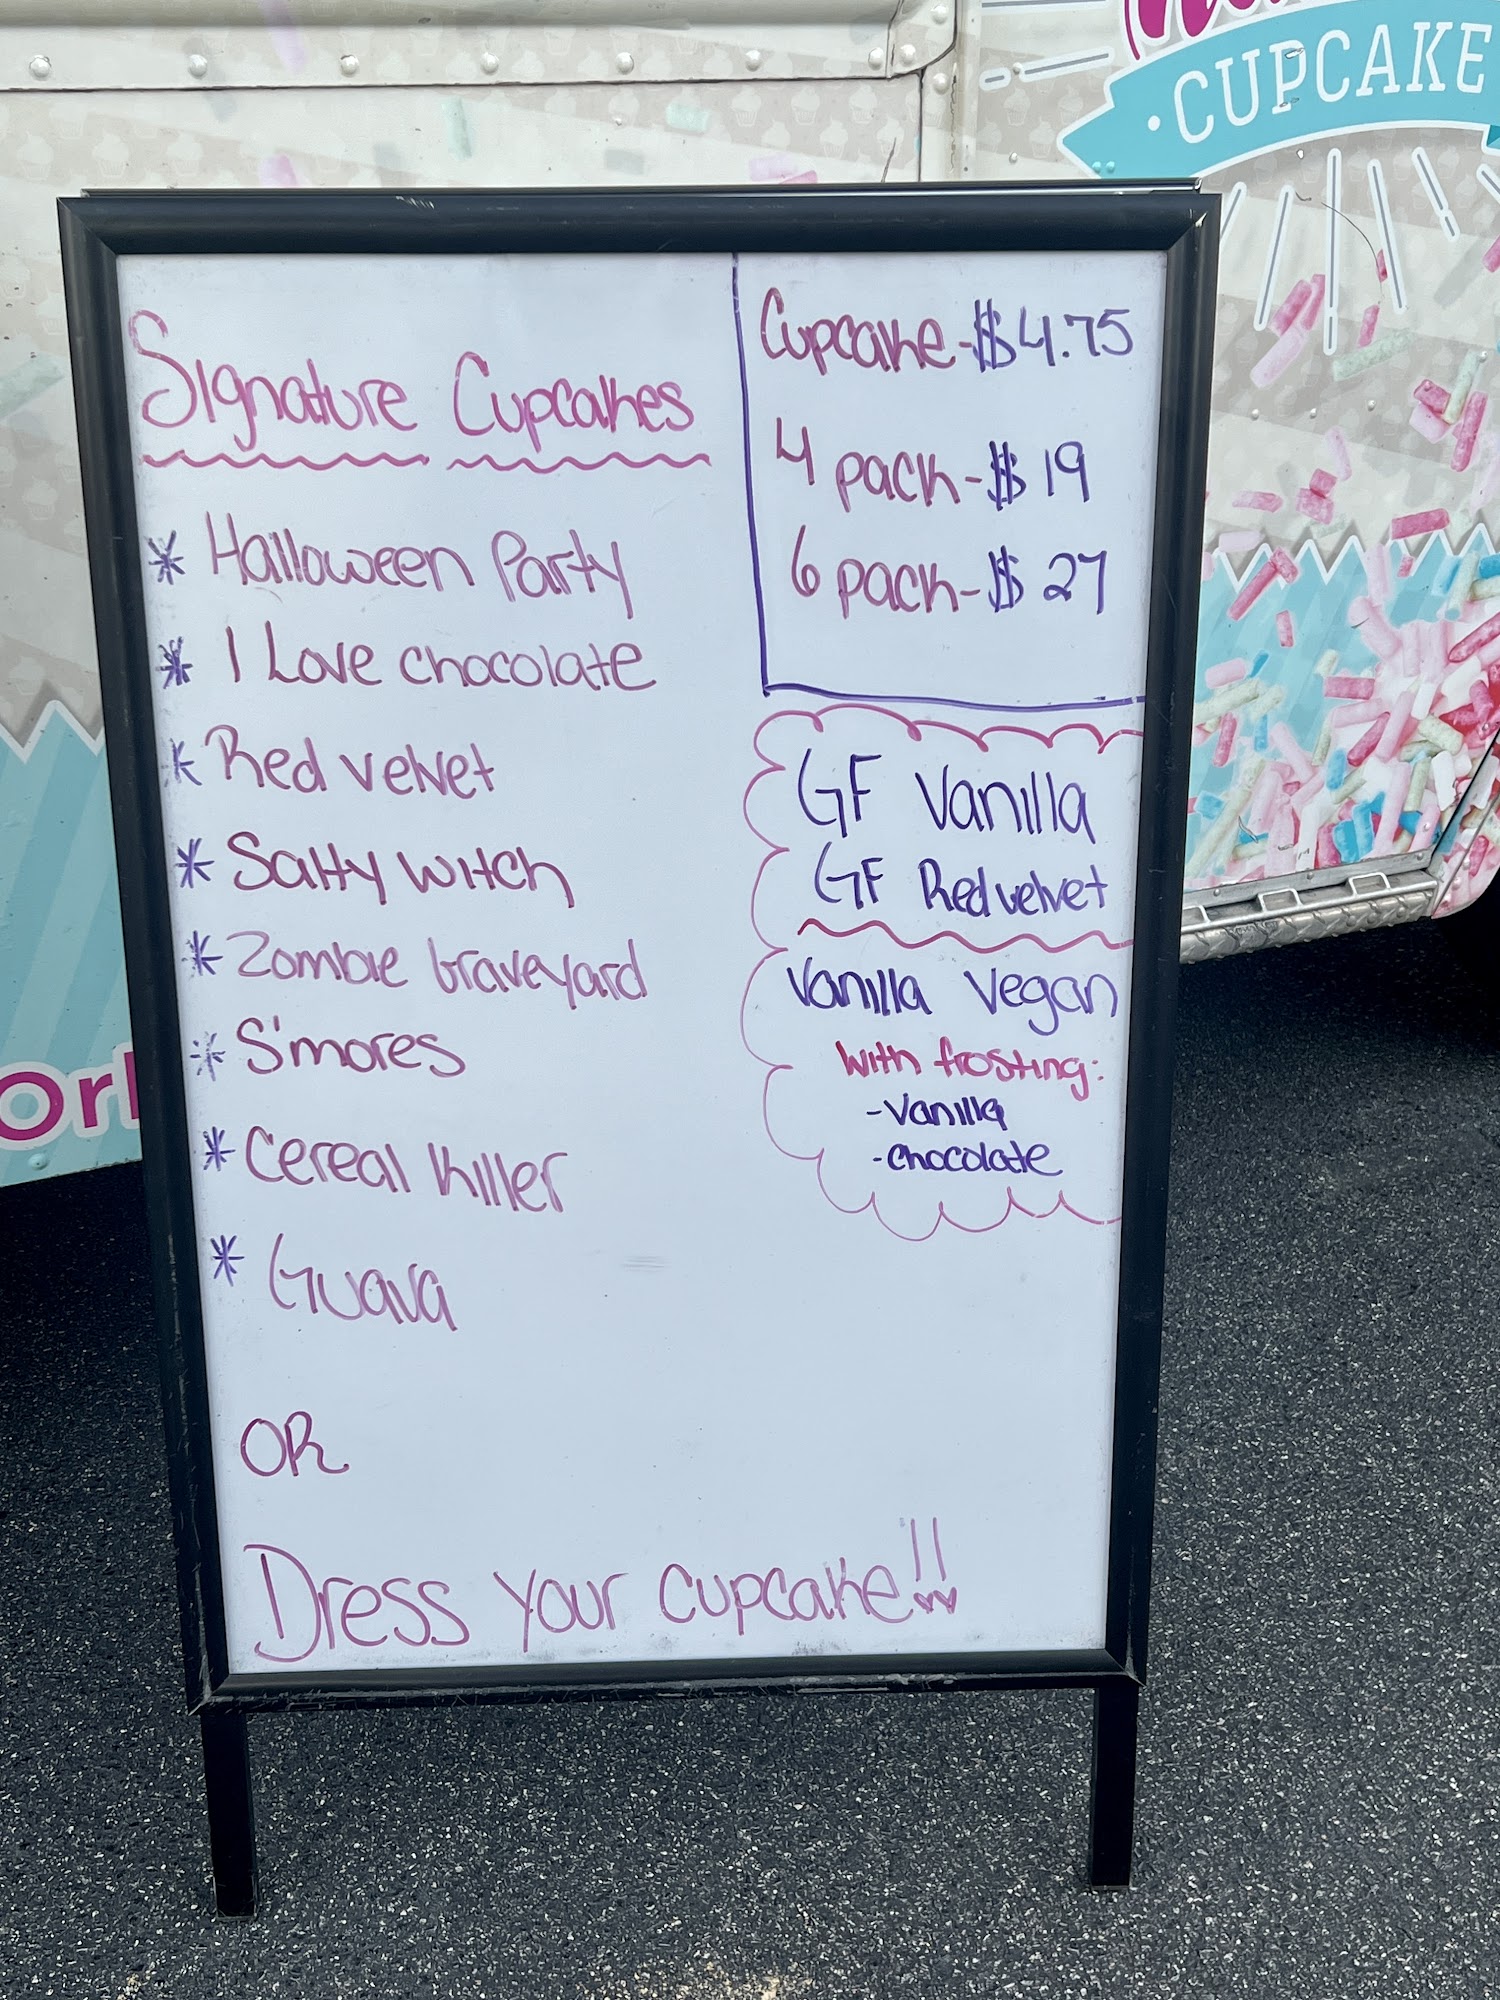 CUPCAKE
Signature Cupcakes
* Halloween Party
* I Love chocolate
* Red velvet
* Salty witch
* Zombie Graveyard
* S'mores
* Cereal Killer
* Guava
OR
Dress your cupcake!!
Cupcake-$4.75
4 pack-$19
6 pack-$27
GF Vanilla
GF Red velvet
Vanilla Vegan
with frosting:
-Vanilla
-chocolate